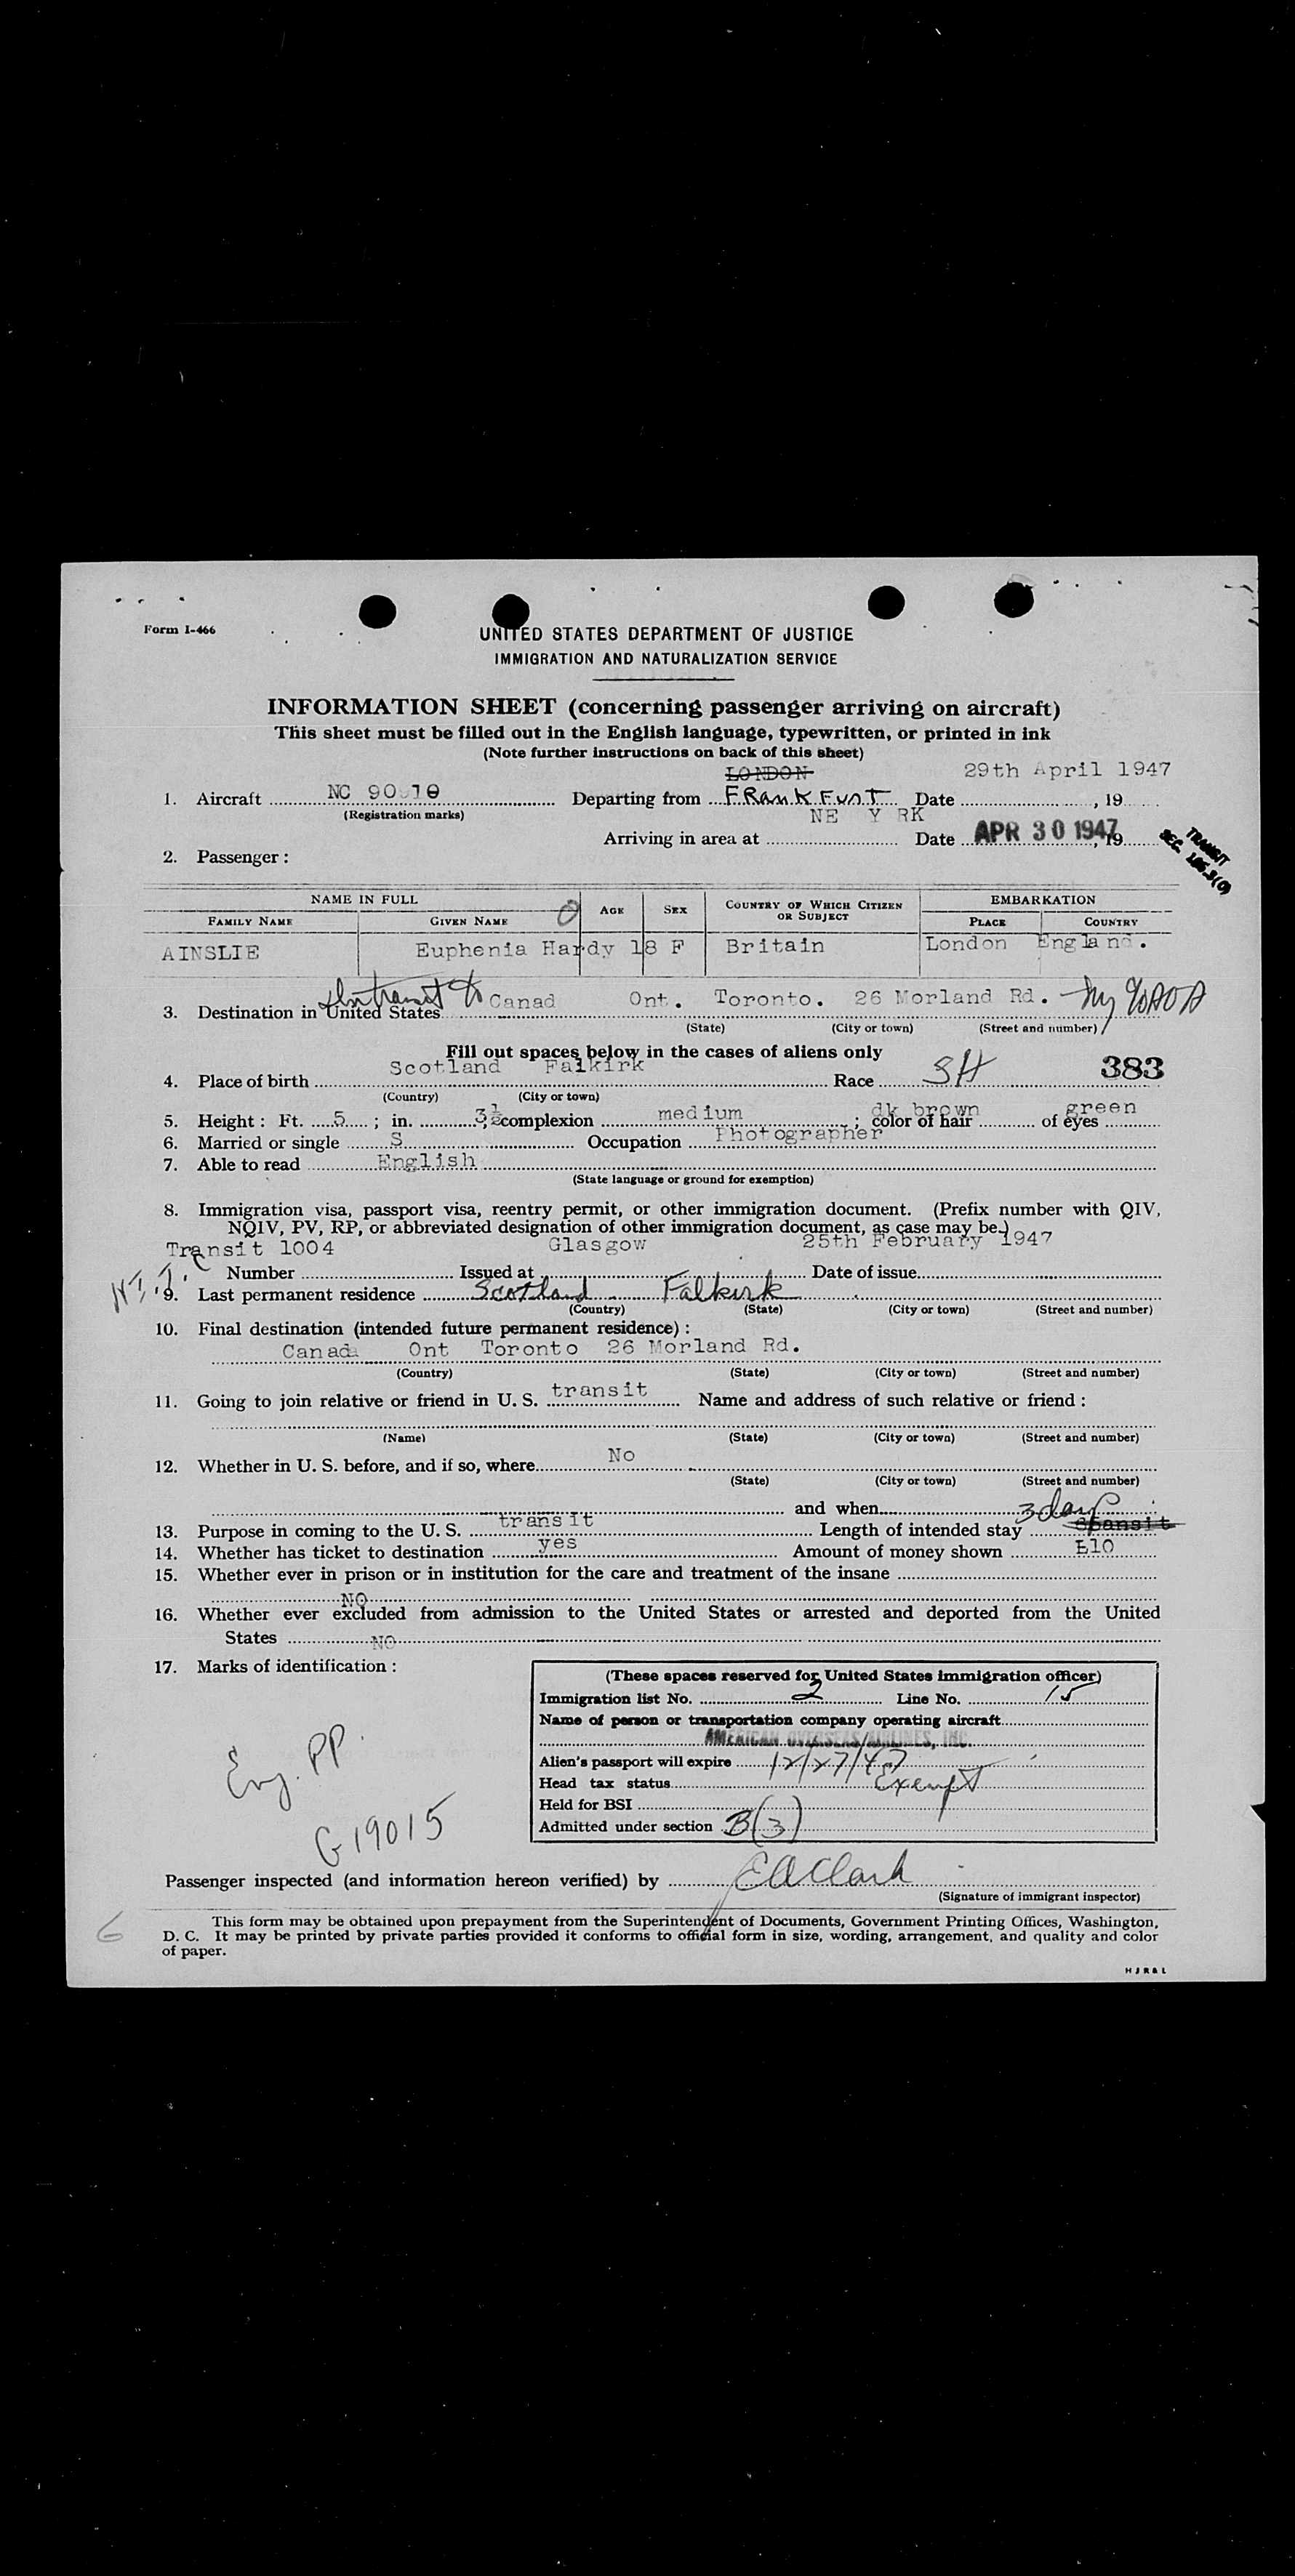 Form I-466
UNITED STATES DEPARTMENT OF JUSTICE
IMMIGRATION AND NATURALIZATION SERVICE
INFORMATION SHEET (concerning passenger arriving on aircraft)
This sheet must be filled out in the English language, typewritten, or printed in ink
(Note further instructions on back of this sheet)
LONDON 29th April 1947
1. Aircraft NC Departing from FRANKFURT Date , 19
(Registration marks) NE Y RK
Arriving in area at Date APR 30 1947, 19 TRANSIT
2. Passenger :
NAME IN FULL AGE SEX COUNTRY OF WHICH CITIZEN OR SUBJECT EMBARKATION
FAMILY NAME GIVEN NAME PLACE COUNTRY
AINSLIE Euphenia Hardy 18 F Britain London England.
3. Destination in United States In transit to Canad Ont. Toronto. 26 Morland Rd.
(State) (City or town) (Street and number)
Fill out spaces below in the cases of aliens only
4. Place of birth Scotland Falkirk Race 383
(Country) (City or town)
5. Height : Ft. 5 ; in. 3½ complexion medium ; color of hair dk brown of eyes green
6. Married or single S Occupation Photographer
7. Able to read English
(State language or ground for exemption)
8. Immigration visa, passport visa, reentry permit, or other immigration document. (Prefix number with QIV,
NQIV, PV, RP, or abbreviated designation of other immigration document, as case may be.)
Transit 1004 Glasgow 25th February 1947
Number Issued at Date of issue
9. Last permanent residence Scotland Falkirk
(Country) (State) (City or town) (Street and number)
10. Final destination (intended future permanent residence) :
Canada Ont Toronto 26 Morland Rd.
(Country) (State) (City or town) (Street and number)
11. Going to join relative or friend in U. S. transit Name and address of such relative or friend :
(Name) (State) (City or town) (Street and number)
12. Whether in U. S. before, and if so, where No
(State) (City or town) (Street and number)
and when
13. Purpose in coming to the U. S. transit Length of intended stay 3 days transit
14. Whether has ticket to destination yes Amount of money shown £10
15. Whether ever in prison or in institution for the care and treatment of the insane
NO
16. Whether ever excluded from admission to the United States or arrested and deported from the United
States NO
17. Marks of identification :
(These spaces reserved for United States immigration officer)
Immigration list No. 2 Line No. 15
Name of person or transportation company operating aircraft
AMERICAN OVERSEAS AIRLINES, INC.
Alien's passport will expire 12/27/47
Head tax status Exempt
Held for BSI
Admitted under section B(3)
Eng. PP.
G19015
Passenger inspected (and information hereon verified) by E A Clark
(Signature of immigrant inspector)
6
This form may be obtained upon prepayment from the Superintendent of Documents, Government Printing Offices, Washington,
D. C. It may be printed by private parties provided it conforms to official form in size, wording, arrangement, and quality and color
of paper.
H J R & L